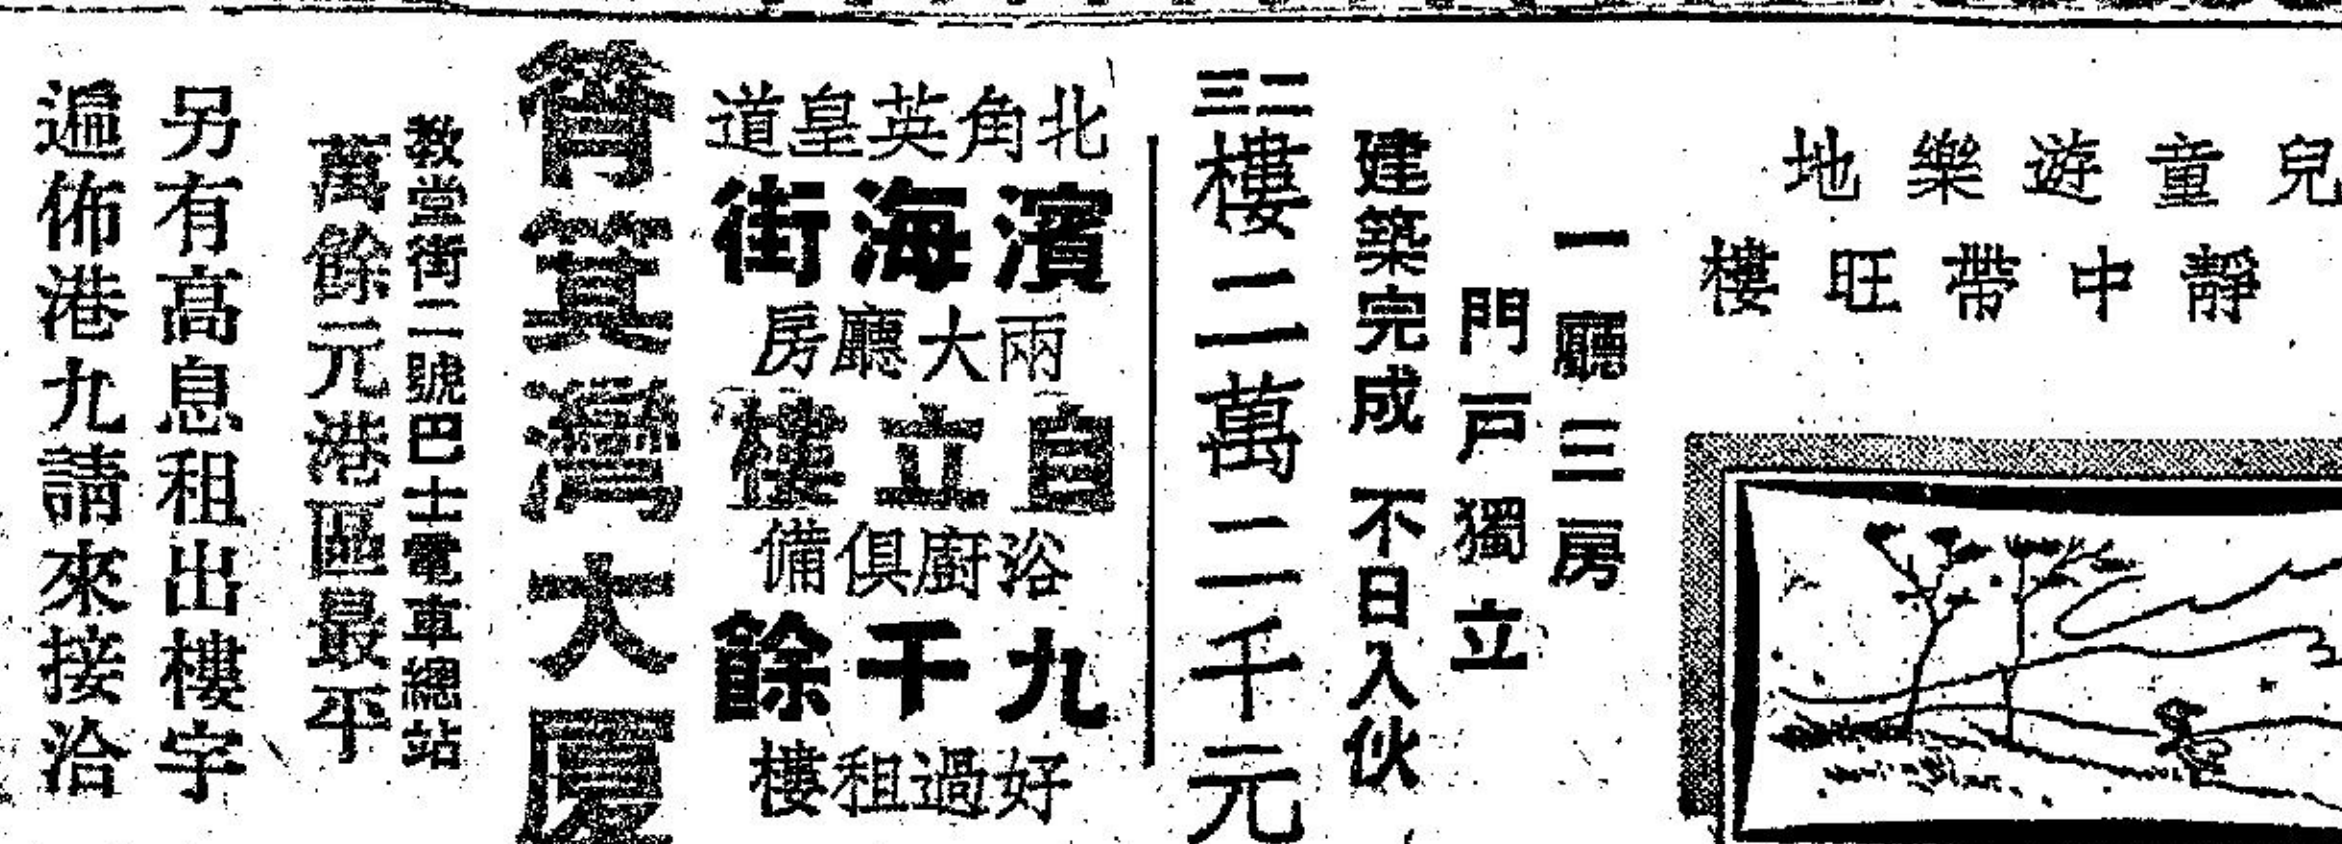 兒童遊樂地
靜中帶旺樓
一廳三房
門戸獨立
建築完成 不日入伙
二三樓二萬二千元
北角英皇道
濱海街
兩大廳房
自立樓
浴廚俱備
九千餘
好過租樓
筲箕灣大廈
教堂街二號巴士電車總站
萬餘元港區最平
另有高息租出樓宇
遍佈港九請來接洽